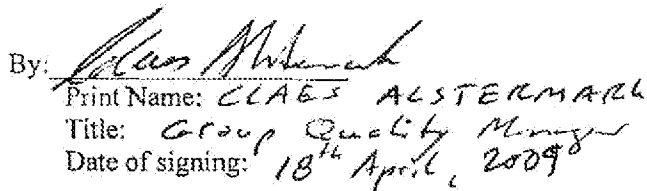 By: Claes Alstermark
Print Name: CLAES ALSTERMARK
Title: Group Quality Manager
Date of signing: 18th April, 2009